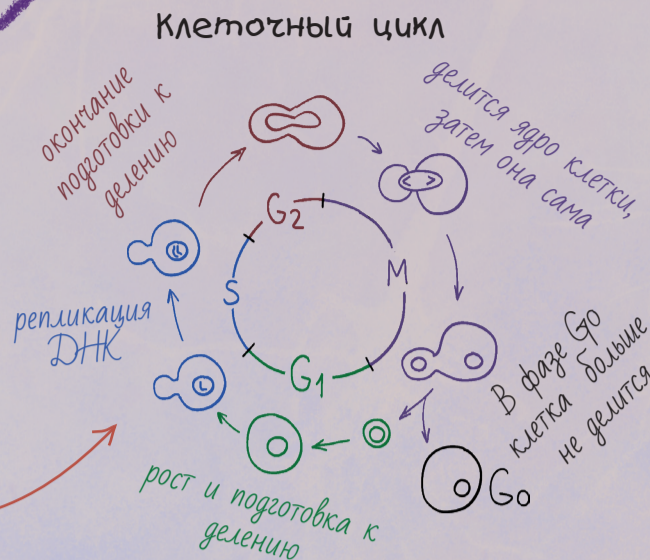 Клеточный цикл
окончание
подготовки к
делению
делится ядро клетки,
затем она сама
G2
M
S
G1
репликация
ДНК
В фазе Go
клетка больше
не делится
Go
рост и подготовка к
делению